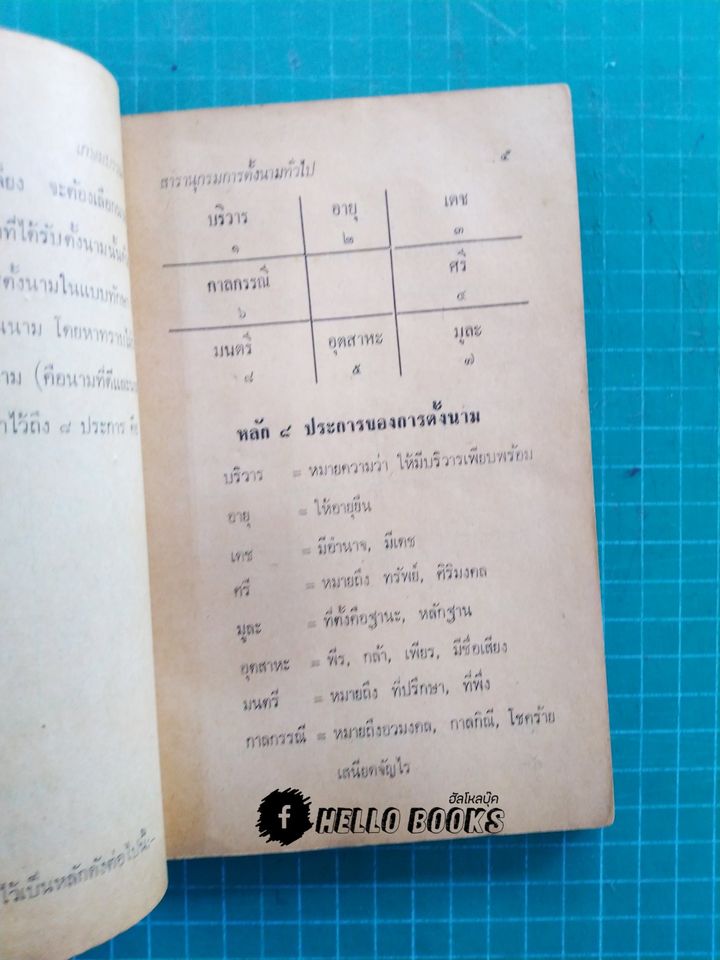 ยง จะต้องเลือก
ที่ได้รับตั้งนามนั้น
ตั้งนามในแบบทักษา
นนาม โดยหา
าม (คือนามที่ดีและ
าไว้ถึง ๘ ประการ คือ
ไว้เป็นหลักดังต่อไปนี้:-
สารานุกรมการตั้งนามทั่วไป ๕
บริวาร อายุ เดช
๑ ๒ ๓
กาลกรรณี ศรี
๖ ๔
มนตรี อุตสาหะ มูละ
๘ ๕ ๗
หลัก ๘ ประการของการตั้งนาม
บริวาร = หมายความว่า ให้มีบริวารเพียบพร้อม
อายุ = ให้อายุยืน
เดช = มีอำนาจ, มีเดช
ศรี = หมายถึง ทรัพย์, ศิริมงคล
มูละ = ที่ตั้งคือฐานะ, หลักฐาน
อุตสาหะ = พีร, กล้า, เพียร, มีชื่อเสียง
มนตรี = หมายถึง ที่ปรึกษา, ที่พึ่ง
กาลกรรณี = หมายถึงอวมงคล, กาลกิณี, โชคร้าย
เสนียดจัญไร
ฮัลโหลบุ๊ค
f HELLO BOOKS